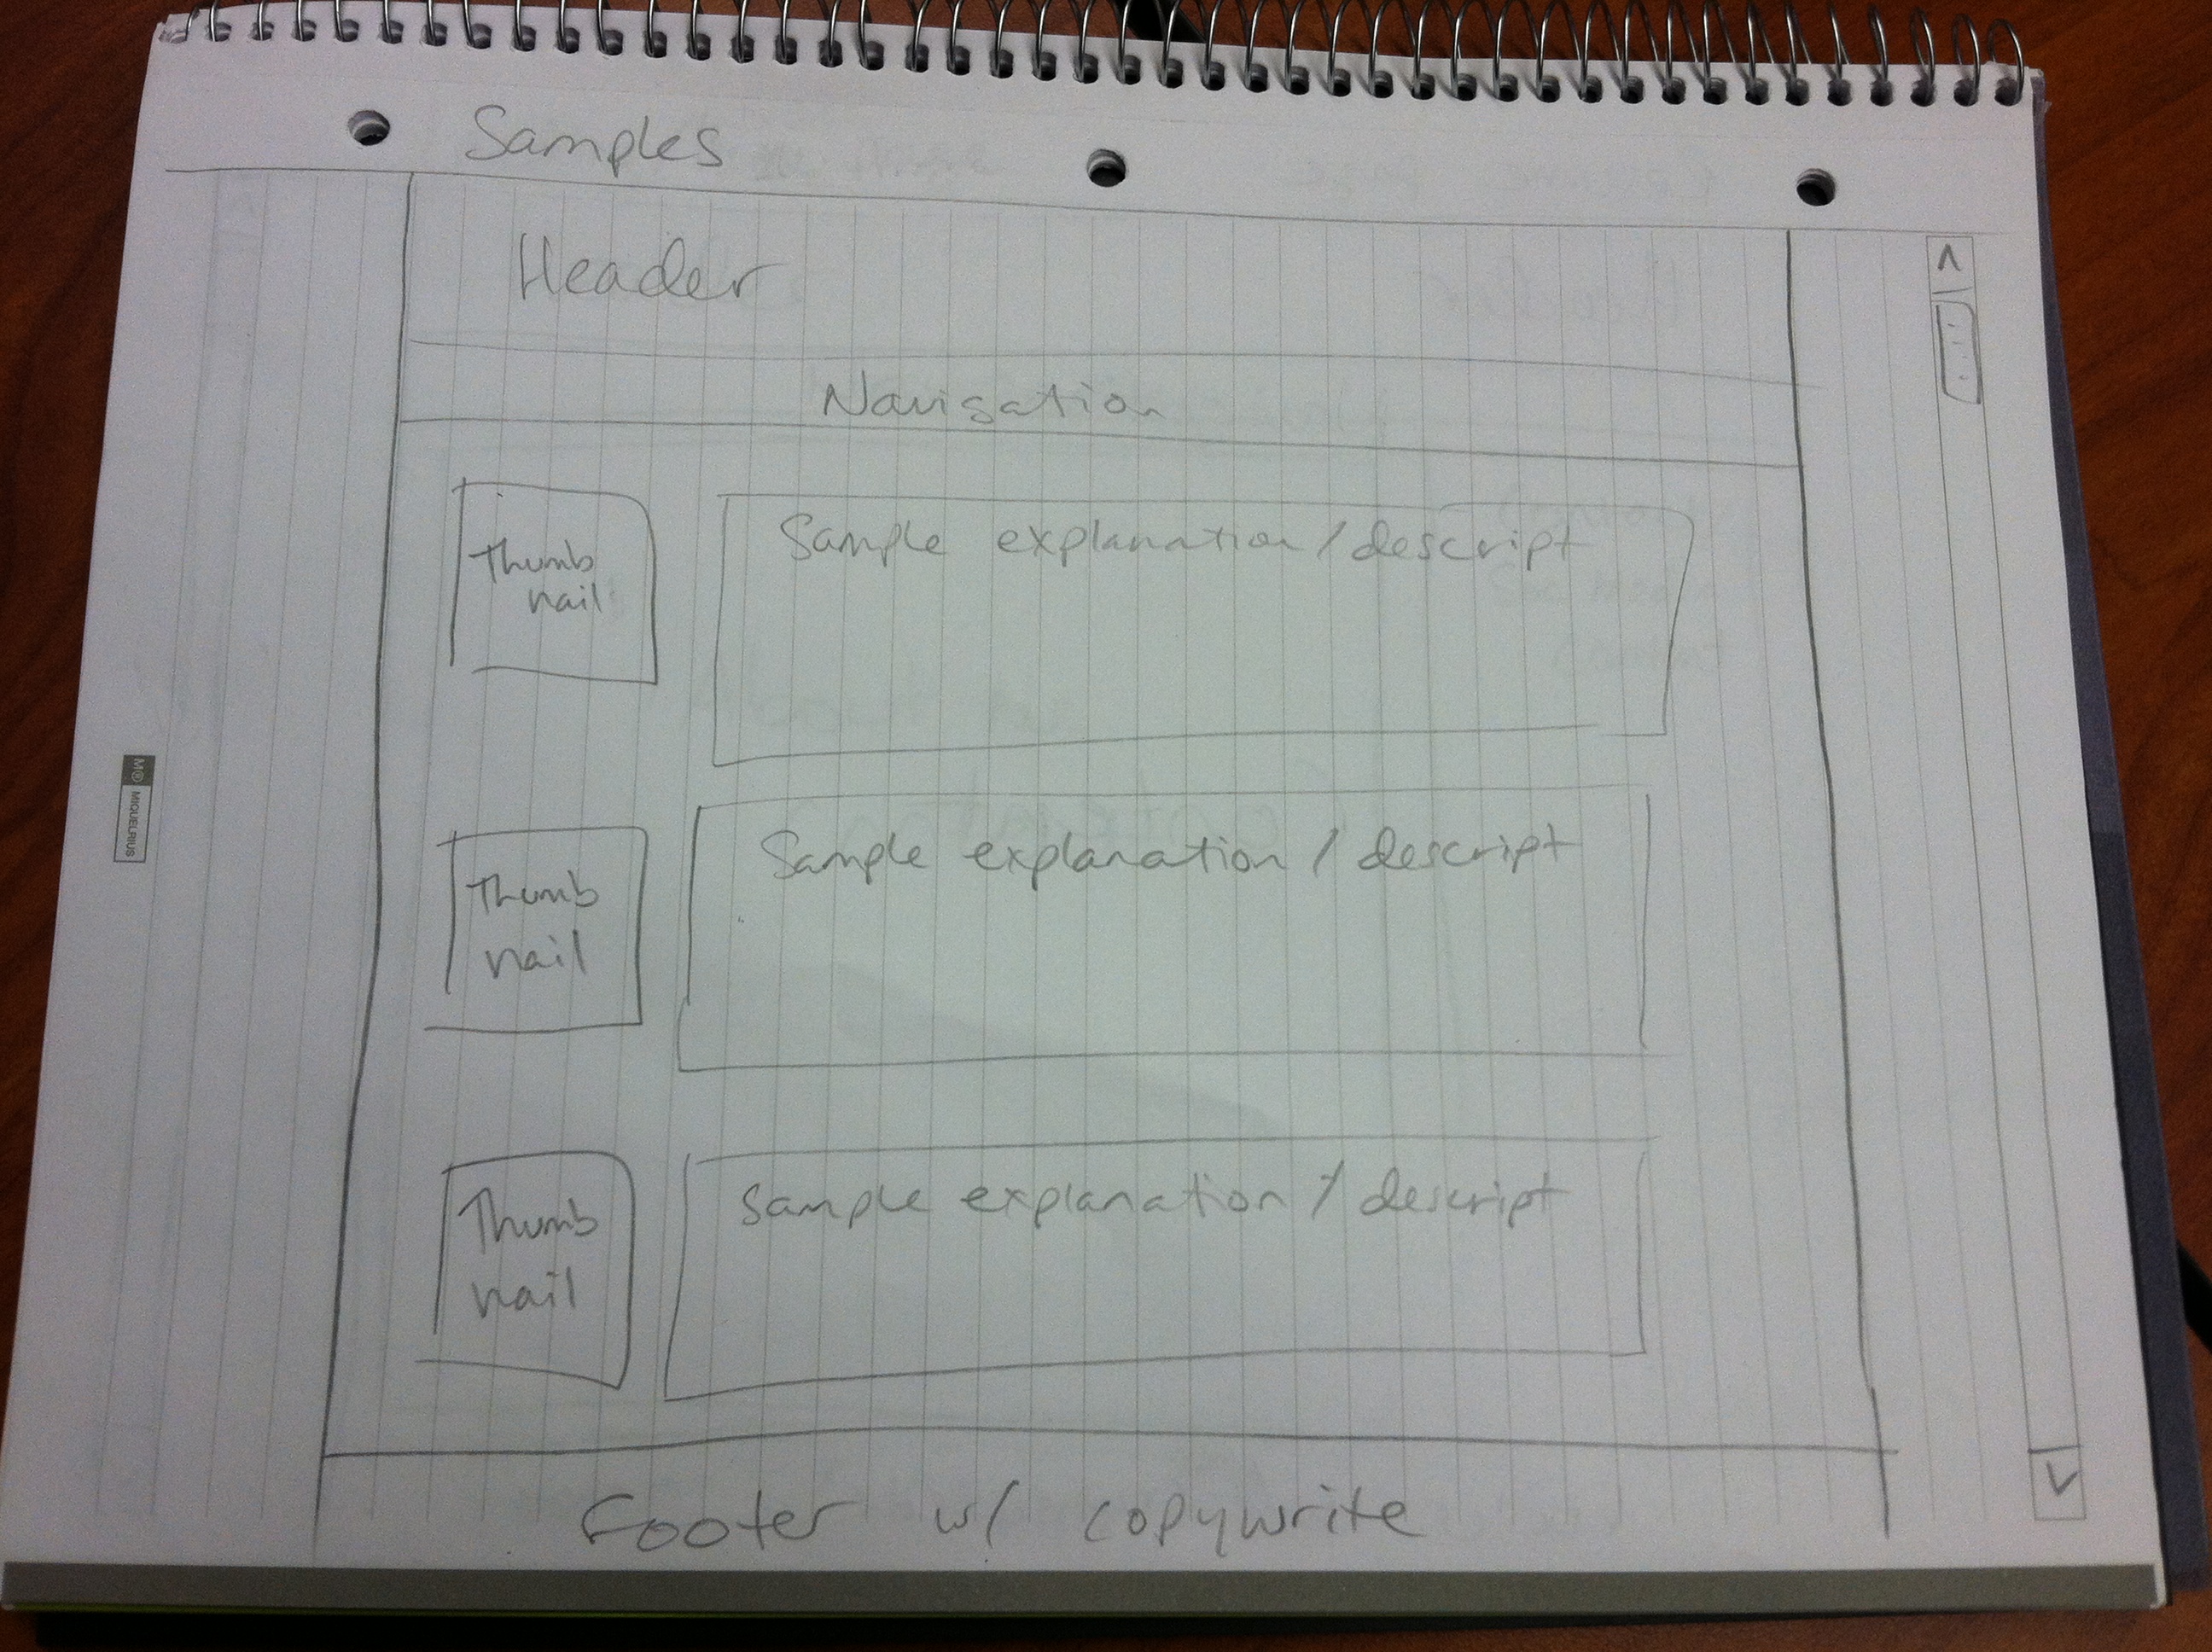 Samples
Header
Navigation
Thumb
nail
Sample explanation / descript
Thumb
nail
Sample explanation / descript
Thumb
nail
Sample explanation / descript
Footer w/ copywrite
MIQUELRIUS